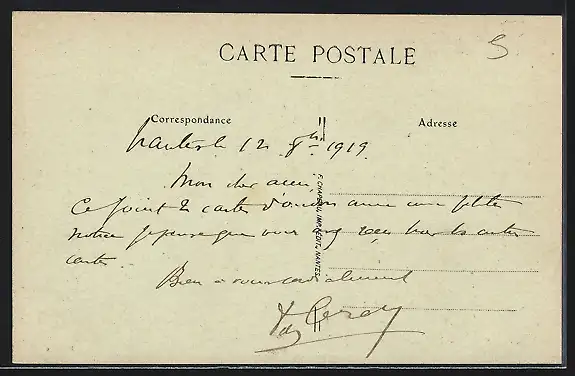 S
CARTE POSTALE
Correspondance
Adresse
Nantes le 12 8bre 1919
Mon cher ami
Ci joint 2 cartes d'oudon avec une petite
notice je pense que vous avez reçu tous les autres
cartes.
Bien à vous cordialement
F. CHAPEAU, IMP. EDIT., NANTES